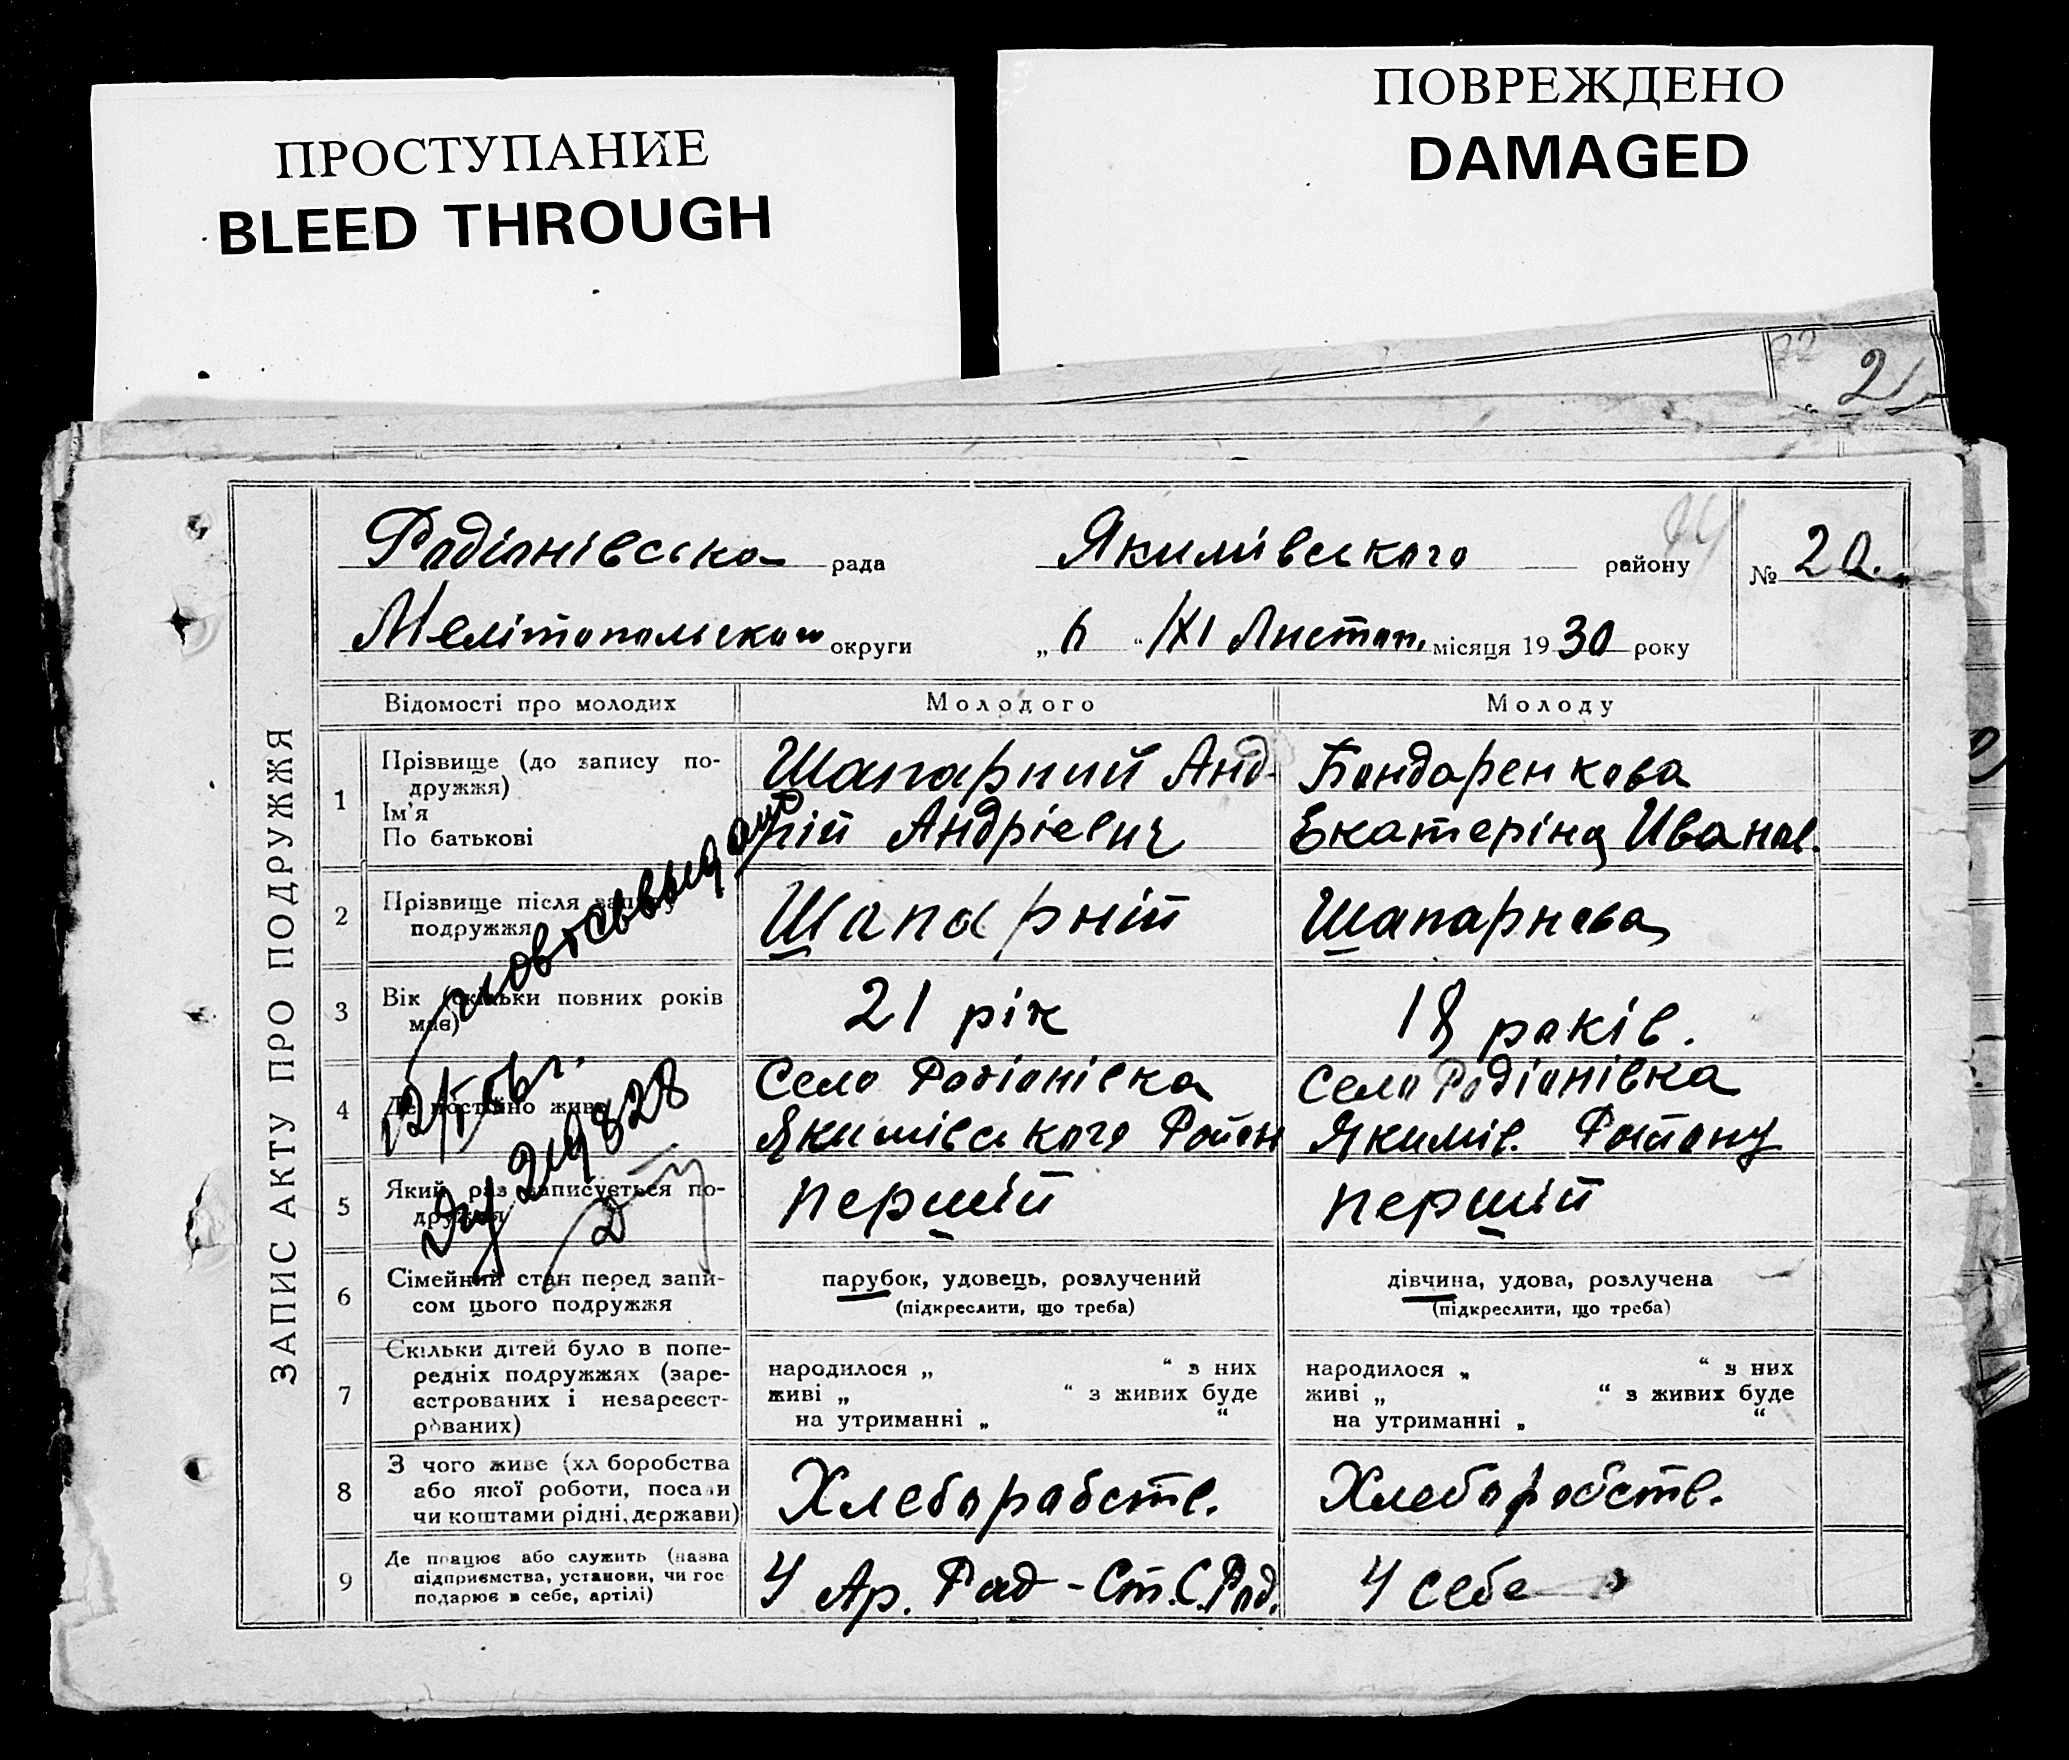 ПРОСТУПАНИЕ
BLEED THROUGH
ПОВРЕЖДЕНО
DAMAGED
21
ЗАПИС АКТУ ПРО ПОДРУЖЖЯ
Радіонівська рада Якимівського району № 20.
Мелітопольского округи „6“ /XI Листоп. місяця 1930 року
Відомості про молодих Молодого Молоду
1 Прізвище (до запису подружжя) Ім'я По батькові
Шапарний Анд-
рій Андрієвич
Бондаренкова
Екатеріна Иванов.
2 Прізвище після запису
подружжя
Шапарній
Шапарнова
3 Вік (скільки повних років
має)
21 рік
18 років.
4 Де постійно живе
Село Родіонівка
Якимівського Район
Село Родіонівка
Якимів. Району
5 Який раз записується по-
дружжя
першій
першій
6 Сімейний стан перед запи-
сом цього подружжя
парубок, удовець, розлучений
(підкреслити, що треба)
дівчина, удова, розлучена
(підкреслити, що треба)
7 Скільки дітей було в попе-
редніх подружжях (заре-
єстрованих і незареєст-
рованих)
народилося „ “ з них
живі „ “ з живих буде
на утриманні „ “
народилося „ “ з них
живі „ “ з живих буде
на утриманні „ “
8 З чого живе (хліборобства
або якої роботи, посади
чи коштами рідні, держави)
Хлеборабств.
Хлеборобств.
9 Де працює або служить (назва
підприємства, установи, чи гос
подарює в себе, артілі)
У Ар. Рад-Ст.С.Рад.
У себе